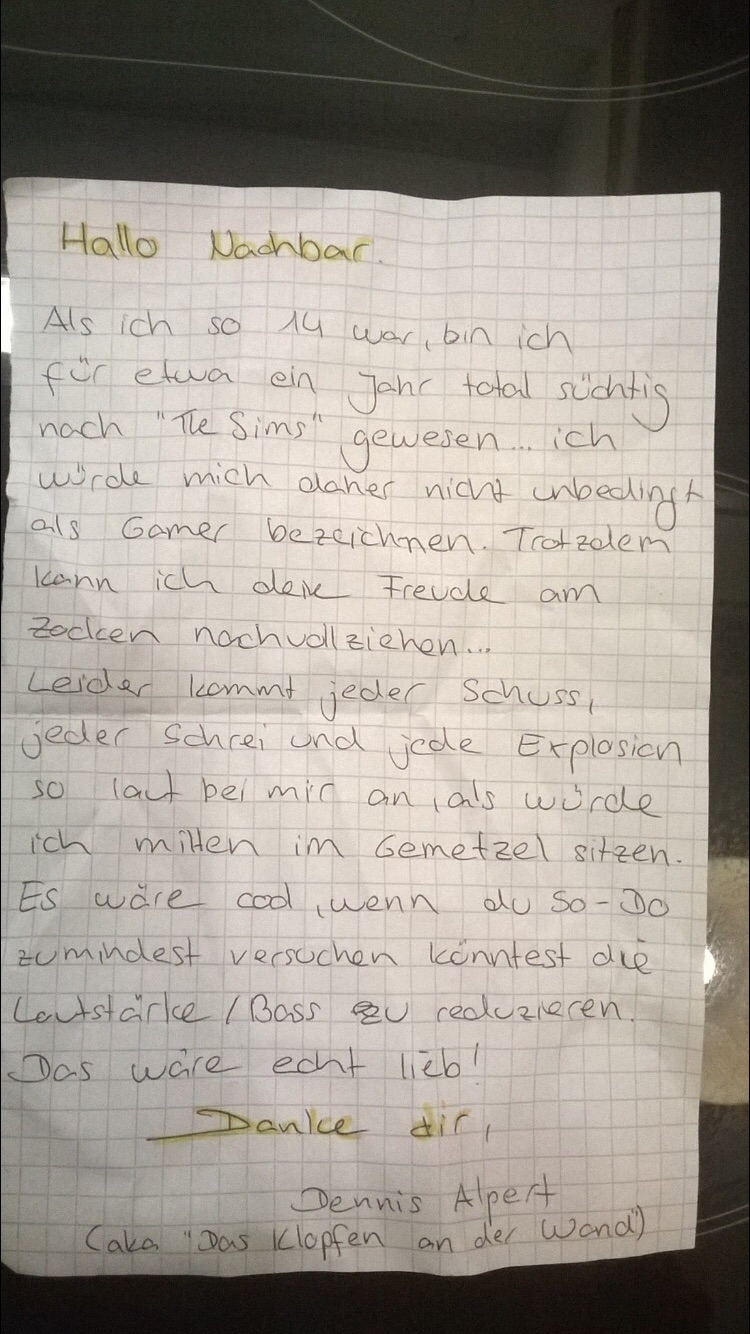 Hallo Nachbar.
Als ich so 14 war, bin ich
für etwa ein Jahr total süchtig
nach "The Sims" gewesen... ich
würde mich daher nicht unbedingt
als Gamer bezeichnen. Trotzdem
kann ich deine Freude am
Zocken nachvollziehen...
Leider kommt jeder Schuss,
jeder Schrei und jede Explosion
so laut bei mir an, als würde
ich mitten im Gemetzel sitzen.
Es wäre cool, wenn du So-Do
zumindest versuchen könntest die
Lautstärke / Bass zu reduzieren.
Das wäre echt lieb!
Danke dir,
Dennis Alpert
(aka "Das Klopfen an der Wand")